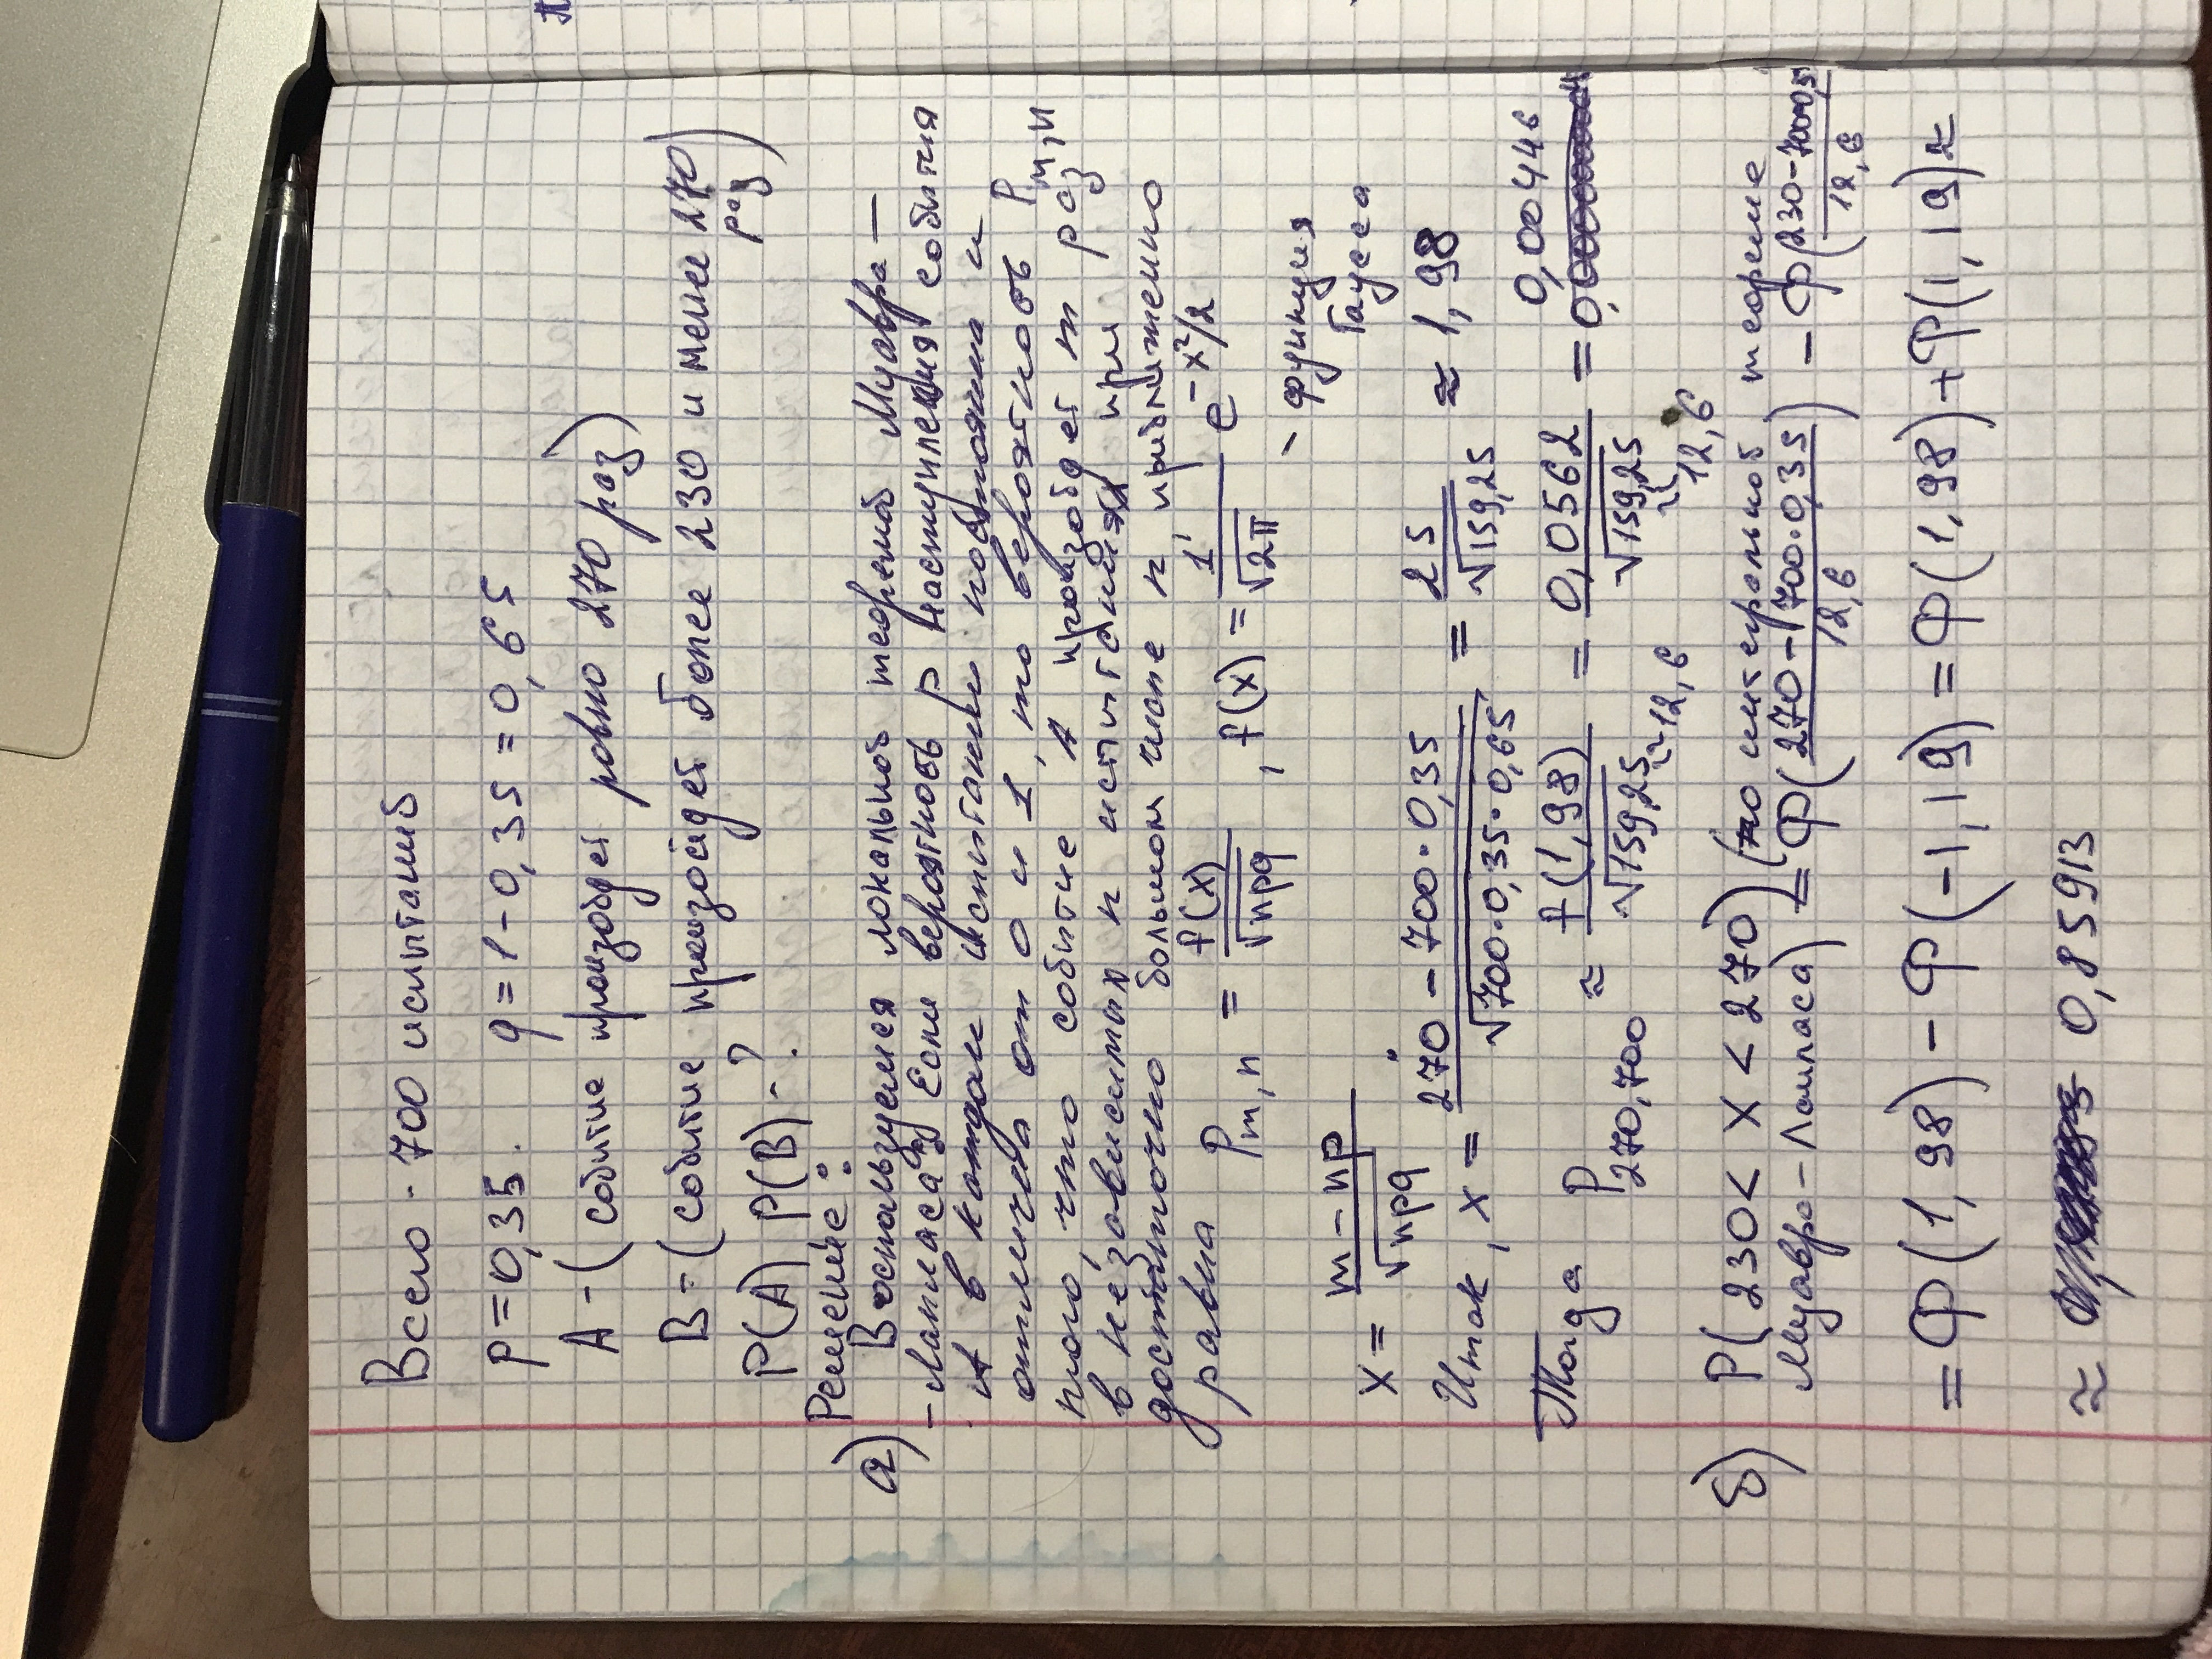 Всего - 700 испытаний
p = 0,35. q = 1 - 0,35 = 0,65
А - (событие произойдет ровно 270 раз)
В - (событие произойдет более 230 и менее 270 раз)
P(A) P(B) - ?
Решение:
а) Воспользуемся локальной теоремой Муавра -
- Лапласа. Если вероятность p наступления события
А в каждом испытании постоянна и
отлична от 0 и 1, то вероятность P m,n
того, что событие А произойдет m раз
в n независимых испытаниях при
достаточно большом числе n приближенно
равна P m,n = f(x)/√npq , f(x) = 1/√2π e^-x²/2
x = m - np/√npq - функция Гаусса
Итак, x = 270 - 700·0,35/√700·0,35·0,65 = 25/√159,25 ≈ 1,98
Тогда P 270,700 ≈ f(1,98)/√159,25 ≈ 12,6 = 0,0562/√159,25 ≈ 12,6 = 0,00446
б) P(230 < X < 270) (по интегральной теореме
Муавра - Лапласа) = Ф(270 - 700·0,35/12,6) - Ф(230 - 700·0,35/12,6)
= Ф(1,98) - Ф(-1,19) = Ф(1,98) + Ф(1,19) ≈
≈ 0,85913